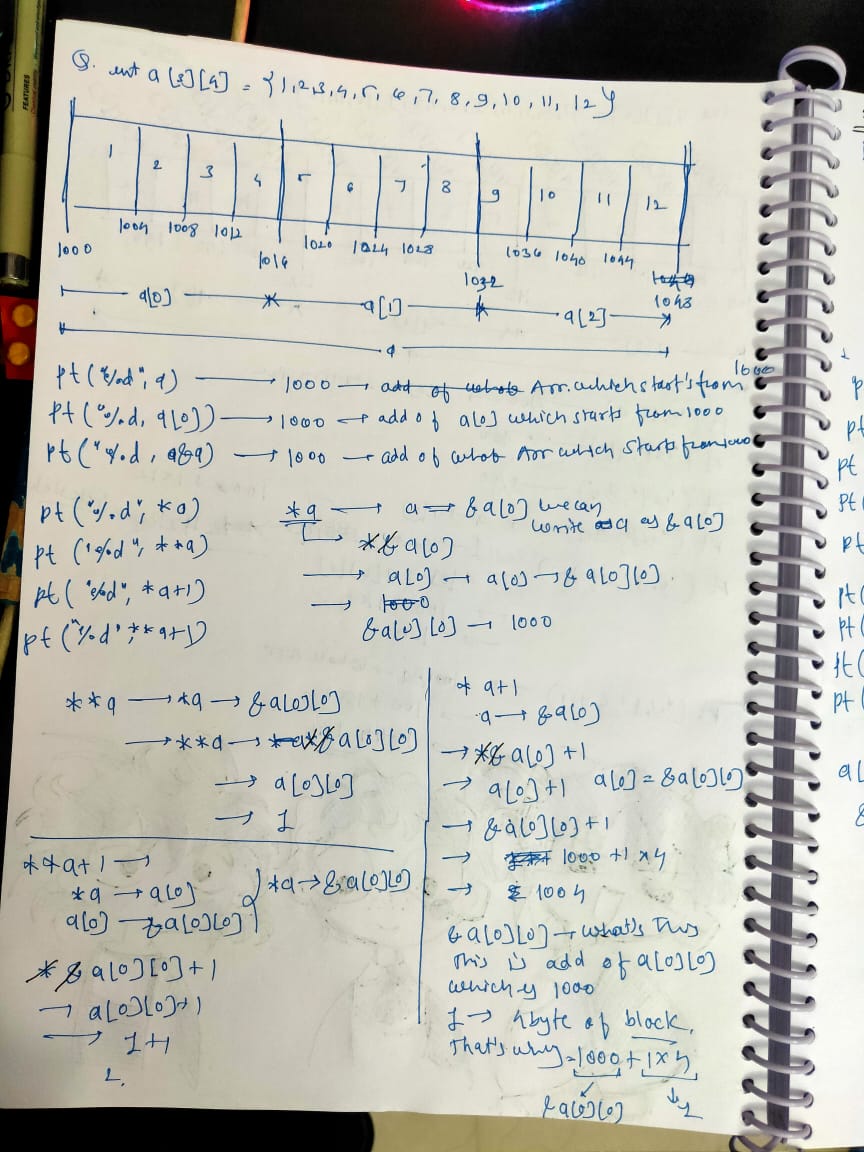 Q. int a[3][4] = {1,2,3,4,5, 6,7, 8,9,10, 11, 12}
1 2 3 4 5 6 7 8 9 10 11 12
1000 1004 1008 1012 1016 1020 1024 1028 1032 1036 1040 1044 1048
a[0] a[1] a[2]
a
pt("%d", a) → 1000 → add of whole Arr. which start's from 1000
pt("%d, a[0]) → 1000 → add of a[0] which starts from 1000
pt("%d, &a) → 1000 → add of whole Arr which starts from 1000
pt("%d", *a)
pt("%d", **a)
pt("%d", *a+1)
pt("%d", **a+1)
*a → a → &a[0] we can
write a as &a[0]
→ *&a[0]
→ a[0] → a[0] → &a[0][0]
→ 1000
&a[0][0] → 1000
**a → *a → &a[0][0]
→ **a → *&a[0][0]
→ a[0][0]
→ 1
* a+1
a → &a[0]
→ *&a[0] +1
→ a[0]+1 a[0] = &a[0][0]
→ &a[0][0]+1
→ 1000 +1 x4
→ 1004
&a[0][0] → what's this
this is add of a[0][0]
which is 1000
1 → 4byte of block,
that's why = 1000 + 1x4
&a[0][0] 1
**a+1 →
*a → a[0]
a[0] → &a[0][0] } *a → &a[0][0]
*&a[0][0]+1
→ a[0][0]+1
→ 1+1
2.
FEATURES